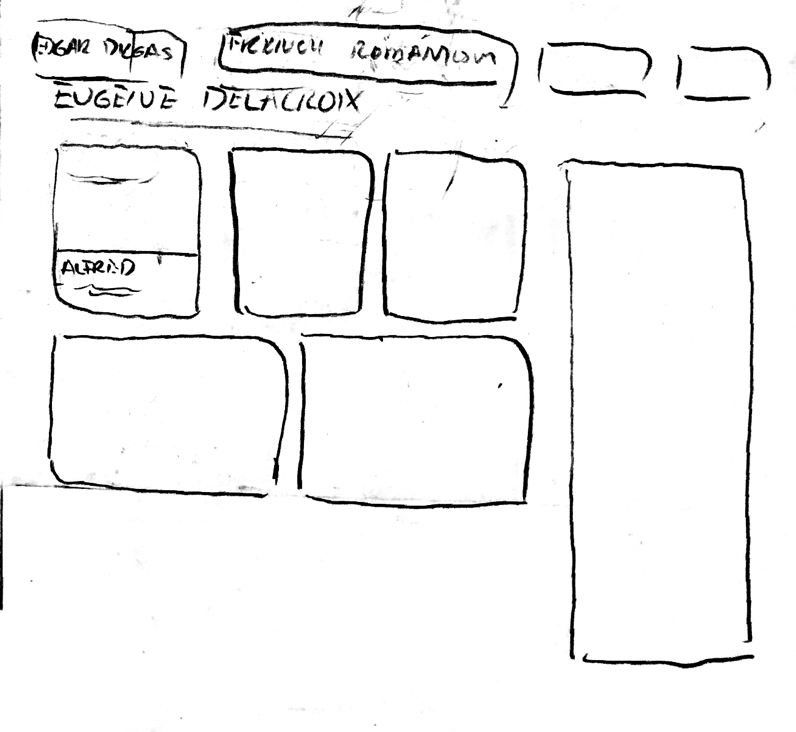 EDGAR DEGAS
FRENCH ROMANTISM
EUGENE DELACROIX
ALFRED